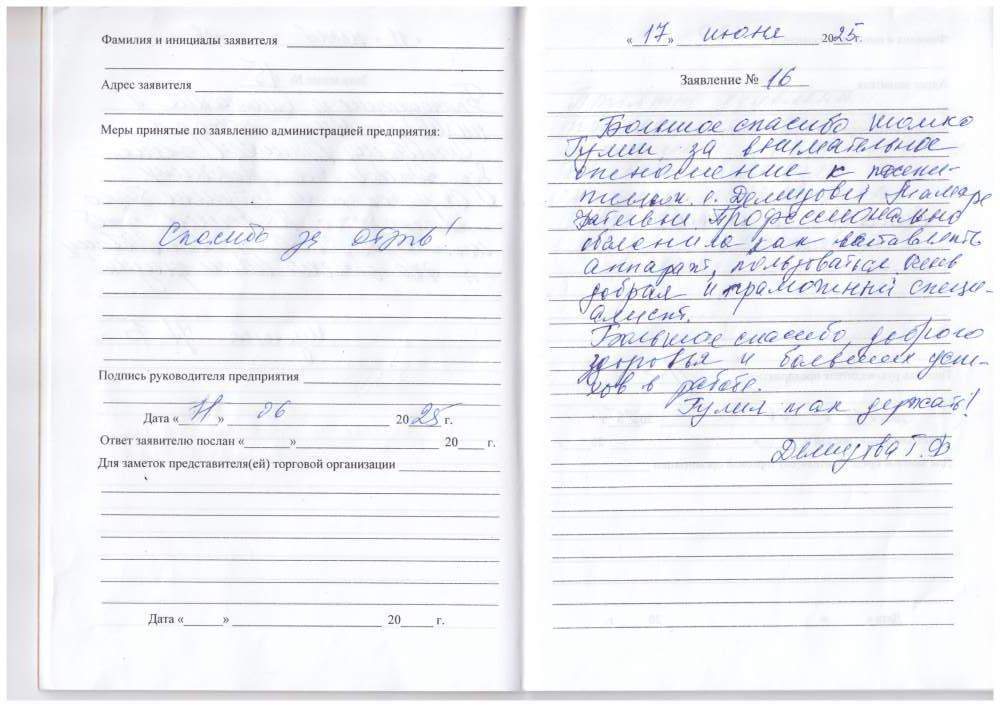 Фамилия и инициалы заявителя
Адрес заявителя
Меры принятые по заявлению администрацией предприятия:
Спасибо за отзыв!
Подпись руководителя предприятия
Дата « » 06 2025 г.
Ответ заявителю послан « » 20 г.
Для заметок представителя(ей) торговой организации
Дата « » 20 г.
«17» июне 2025г.
Заявление № 16
Большое спасибо
Гулии за внимательное
отношение к
Тамаре
Профессионально
как вставлять
аппарат, пользоваться
добрая и грамотный специ-
алист.
Большое спасибо, доброго
здоровья и успе-
хов в работе.
Гулия так держать!
Т.Ф